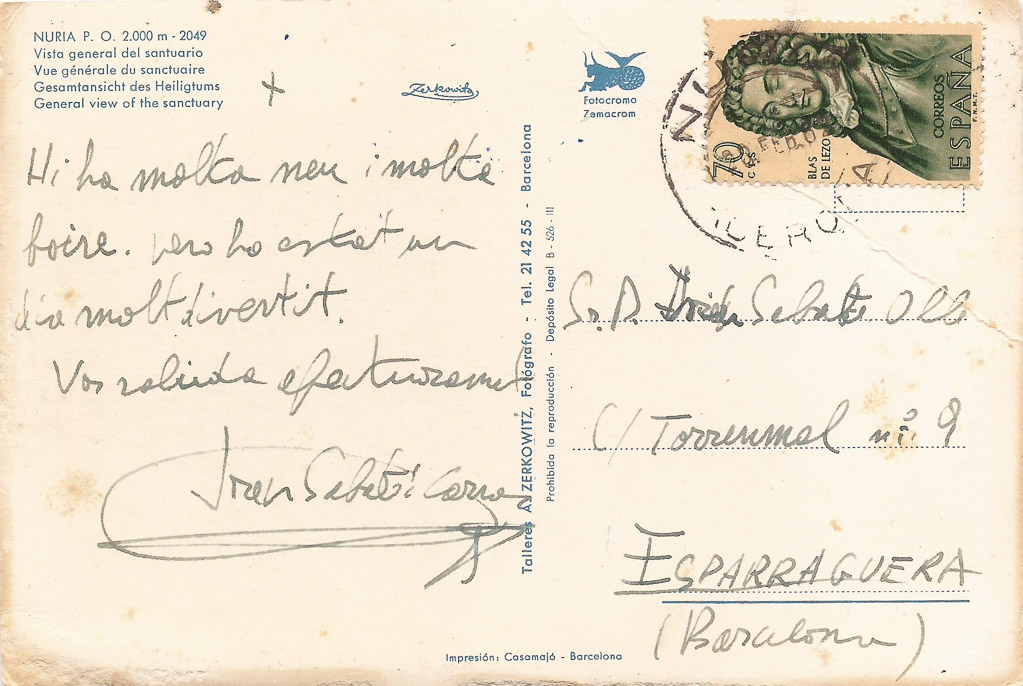 NURIA P. O. 2.000 m - 2049
Vista general del santuario
Vue générale du sanctuaire
Gesamtansicht des Heiligtums
General view of the sanctuary
Zerkowitz
Fotocromo
Zemacrom
70
CTS
BLAS
DE LEZO
CORREOS
ESPAÑA
F.N.M.T.
FEB.
Hi ha molta neu i molta
boire. pero ha estat un
dia molt divertit.
Vos saluda afectuosament
Joan Sabaté i
Talleres A. ZERKOWITZ, Fotógrafo - Tel. 21 42 55 - Barcelona
Prohibida la reproducción - Depósito Legal B - 526 - III
Sr. D. Sabaté Olle
C/ nº. 9
ESPARRAGUERA
(Barcelona)
Impresión: Casamajó - Barcelona